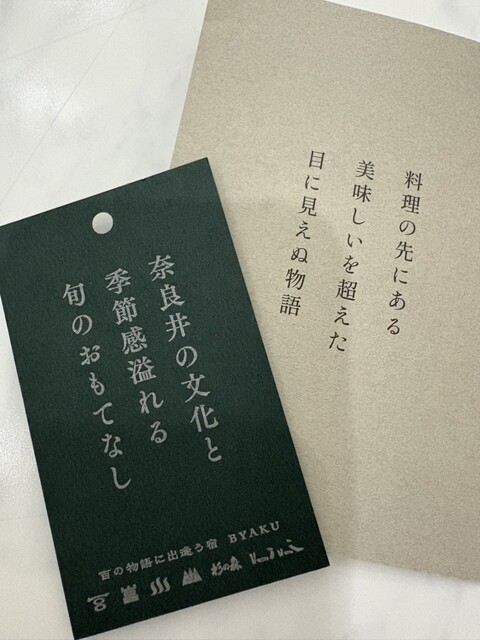 料理の先にある
美味しいを超えた
目に見えぬ物語
奈良井の文化と
季節感溢れる
旬のおもてなし
百の物語に出逢う宿 BYAKU
杉の森